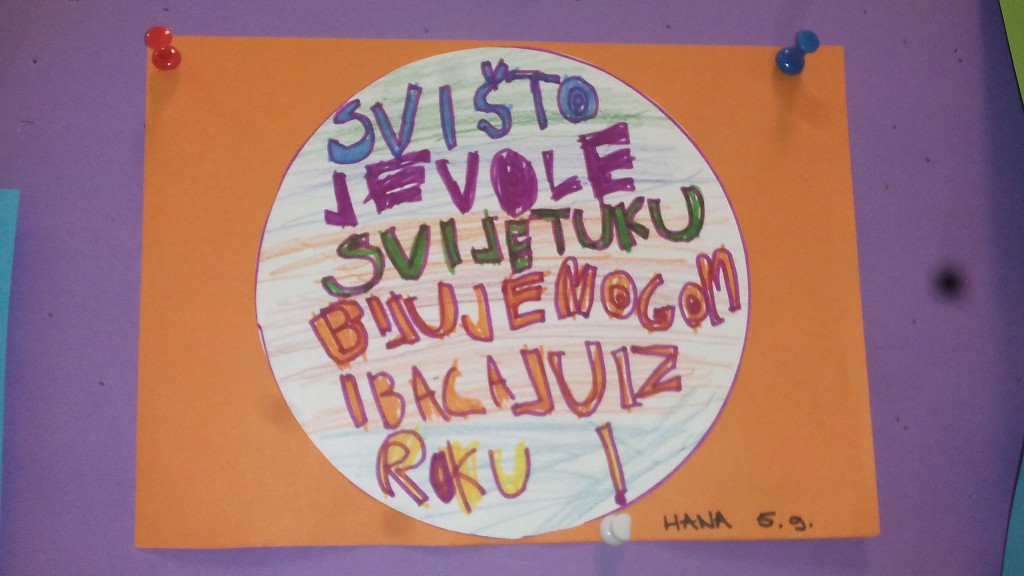 SVIŠTO
JEVOLE
SVIJETUKU
BIJUJEMOGOM
IBACAJUIZ
ROKU !
HANA 5.g.